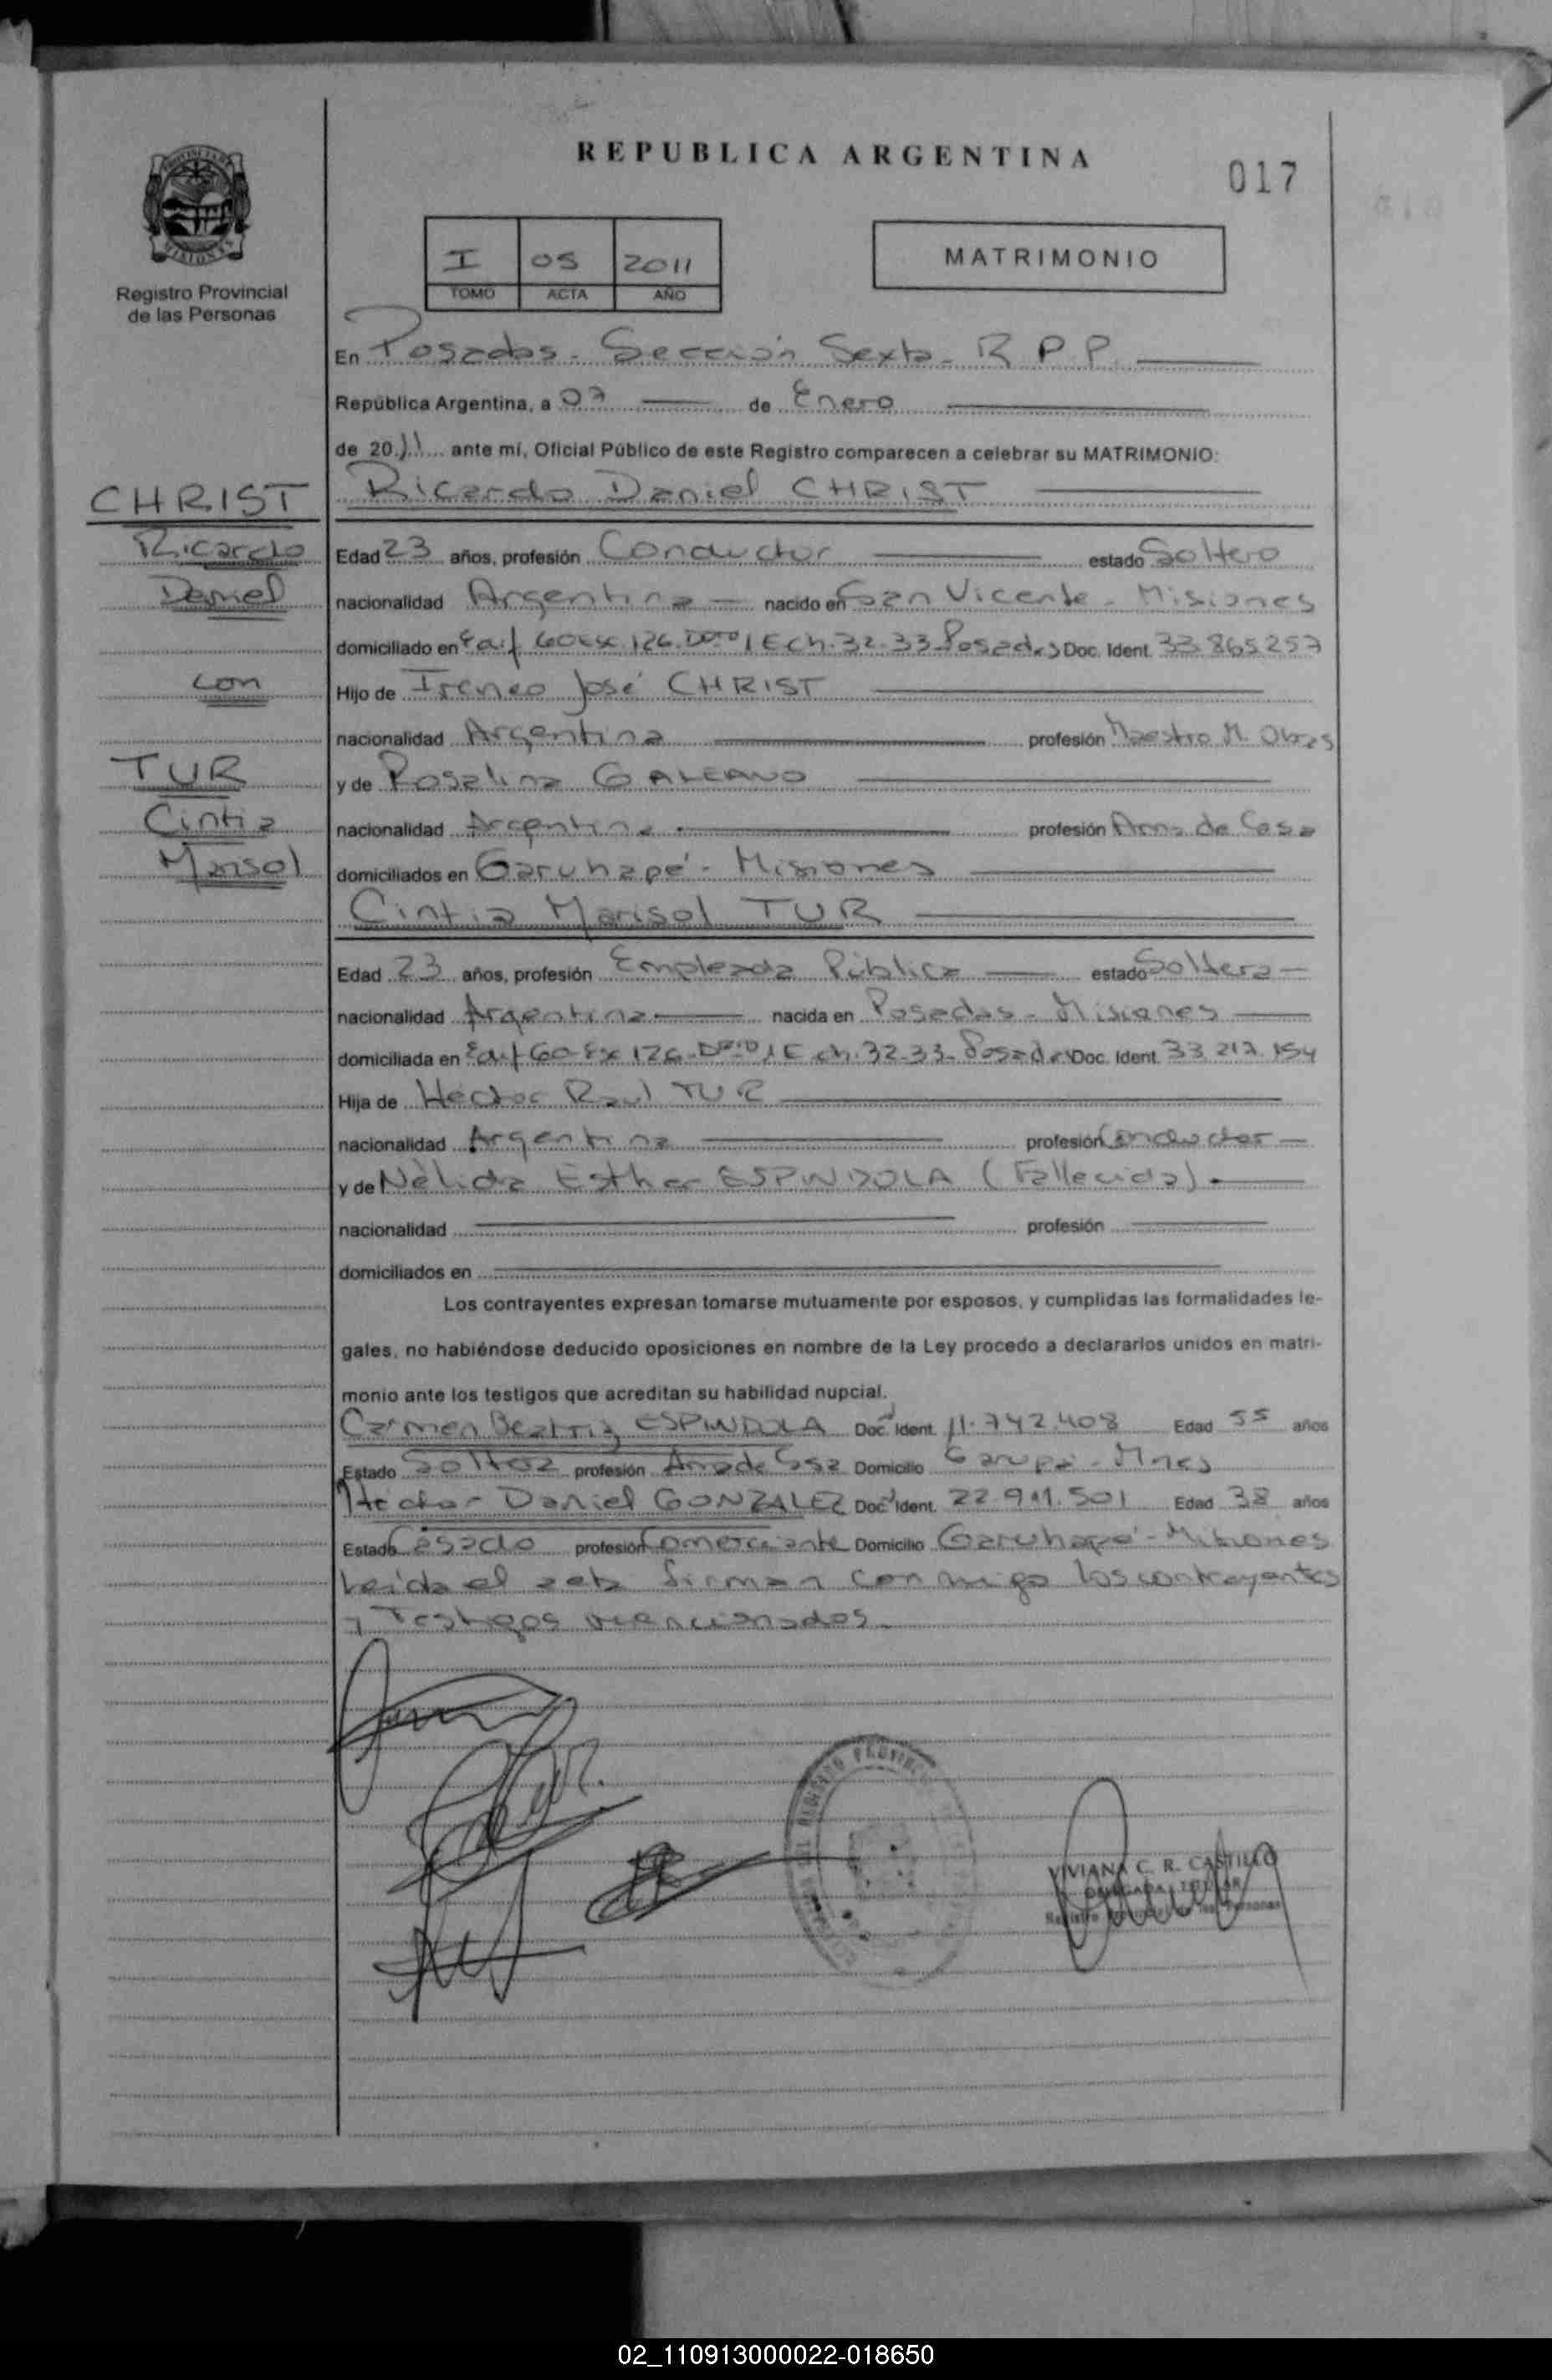 REPUBLICA ARGENTINA
017
Registro Provincial
de las Personas
I 05 2011
TOMO ACTA AÑO
MATRIMONIO
En Posadas - Sección Sexta - R P P.
República Argentina, a 07 de Enero
de 2011 ante mí, Oficial Público de este Registro comparecen a celebrar su MATRIMONIO:
CHRIST
Ricardo
Daniel
con
TUR
Cintia
Marisol
Ricardo Daniel CHRIST
Edad 23 años, profesión Conductor estado Soltero
nacionalidad Argentina nacido en San Vicente - Misiones
domiciliado en Edif 60 Esc. 126. Dpto 1 E ch. 32-33 Posadas Doc. Ident. 33.865.257
Hijo de Ireneo José CHRIST
nacionalidad Argentina profesión Maestro M. Obras
y de Rosalina GALEANO
nacionalidad Argentina profesión Ama de Casa
domiciliados en Garuhapé - Misiones
Cintia Marisol TUR
Edad 23 años, profesión Empleada Pública estado Soltera
nacionalidad Argentina nacida en Posadas - Misiones
domiciliada en Edif 60 Esc 126 - Dpto 1 E ch. 32-33 - Posadas Doc. Ident. 33.217.154
Hija de Hector Raul TUR
nacionalidad Argentina profesión Conductor
y de Nélida Esther ESPINDOLA (Fallecida).
nacionalidad profesión
domiciliados en
Los contrayentes expresan tomarse mutuamente por esposos, y cumplidas las formalidades le-
gales, no habiéndose deducido oposiciones en nombre de la Ley procedo a declararlos unidos en matri-
monio ante los testigos que acreditan su habilidad nupcial.
Carmen Beatriz ESPINDOLA Doc. Ident. 11.742.408 Edad 55 años
Estado Soltera profesión Ama de Casa Domicilio Garupá - Mnes
Hector Daniel GONZALEZ Doc. Ident. 22.911.501 Edad 38 años
Estado Casado profesión Comerciante Domicilio Garuhapé - Misiones
Leída el acta firman conmigo los contrayentes
y Testigos mencionados.
VIVIANA C. R. CASTILLO
DELEGADA TITULAR
Registro Provincial de las Personas
02_110913000022-018650